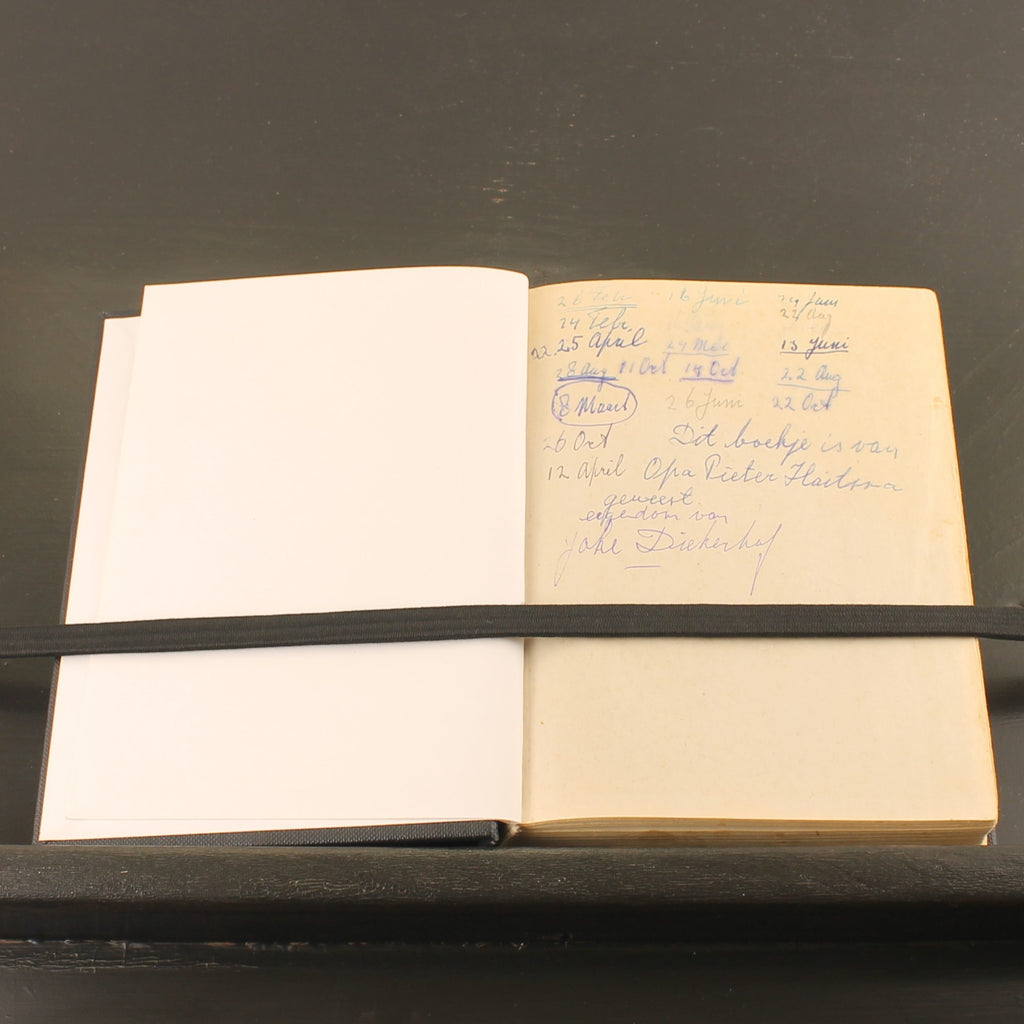 26 Febr 16 Juni 24 Juni
24 Febr. 22 Aug
22. 25 April 24 Mei 13 Juni
28 Aug 11 Oct 14 Oct 22 Aug
8 Maart 26 Juni 22 Oct
26 Oct Dit boekje is van
12 April Opa Pieter Haitsma
geweest.
eigendom van
Joke Diekerhof